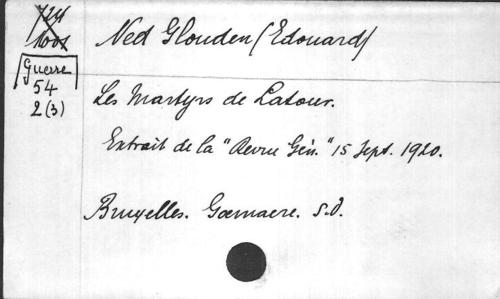 Ned Glouden (Edouard)
Guerre
54
2(3)
Les Martyrs de Latour.
Extrait de la "Revue Gén." 15 Sept. 1920.
Bruxelles. Goemaere. s.d.